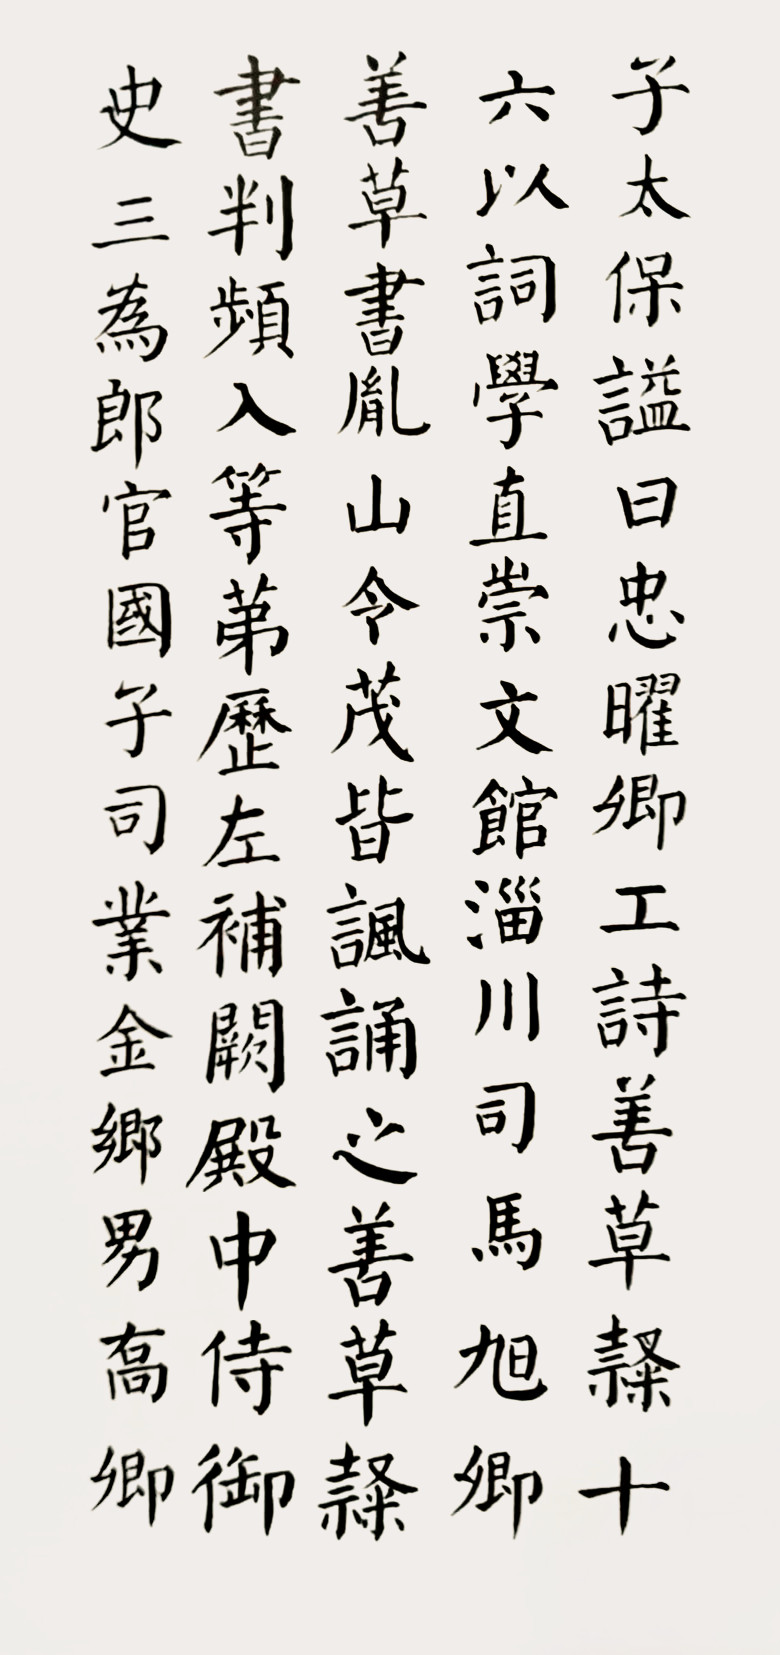 子太保謚曰忠曜卿工詩善草隸十
六以詞學直崇文館淄川司馬旭卿
善草書胤山令茂皆諷誦之善草隸
書判頻入等第歷左補闕殿中侍御
史三為郎官國子司業金鄉男喬卿